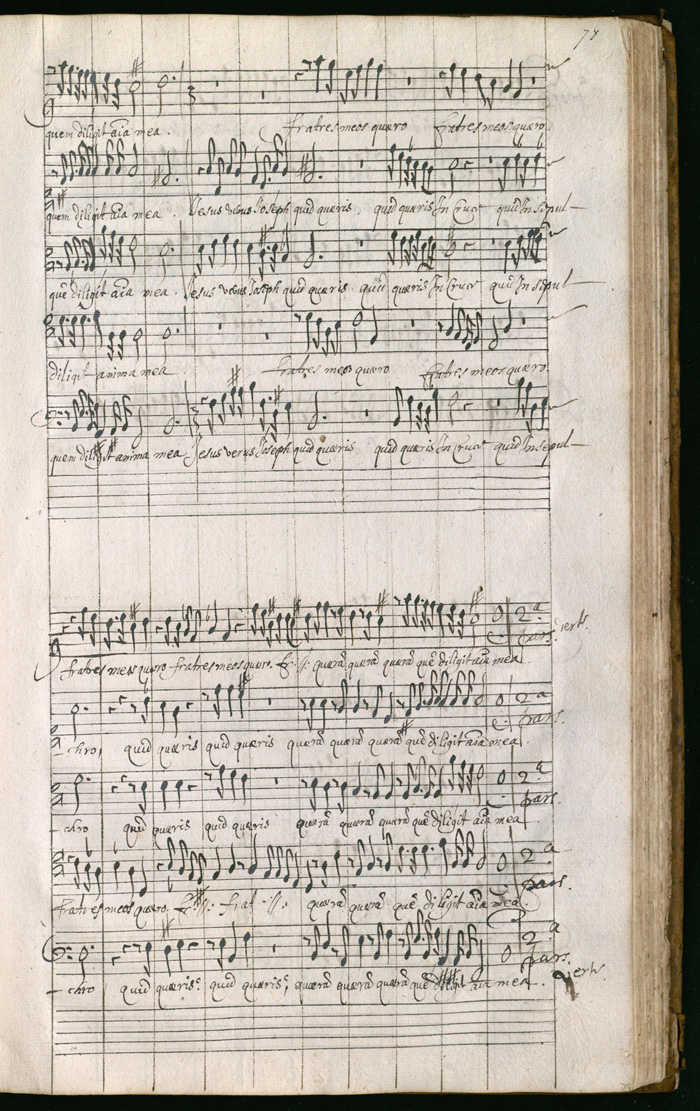 78
quem diligit aĩa mea. fratres meos quæro fratres meos quæro.
quem diligit aĩa mea. Jesus verus Joseph quid quæris quid quæris In Cruce quid In sepul-
quẽ diligit aĩa mea. Jesus verus Joseph quid quæris quid quæris In Cruce quid In sepul-
diligit anima mea fratres meos quæro fratres meos quæro.
quem diligit anima mea Jesus verus Joseph quid quæris quid quæris In Cruce quid In sepul-
2.ª
pars.
fratres meos quæro fratres meos quæro. fr ·//: quærã quærã quærã quẽ diligit aĩa mea
2ª
pars.
-chro, quid quæris quid quæris quærã quærã quærã quẽ diligit aĩa mea.
2ª
pars.
-chro quid quæris quid quæris quærã quærã quærã quẽ diligit aĩa mea
2ª
pars.
fratres meos quæro. fr ·//: frat ·//: quærã quærã quẽ diligit aĩa mea.
2.ª
pars.
-chro quid quæris? quid quæris? quærã quærã quærã quẽ diligit aĩa mea.